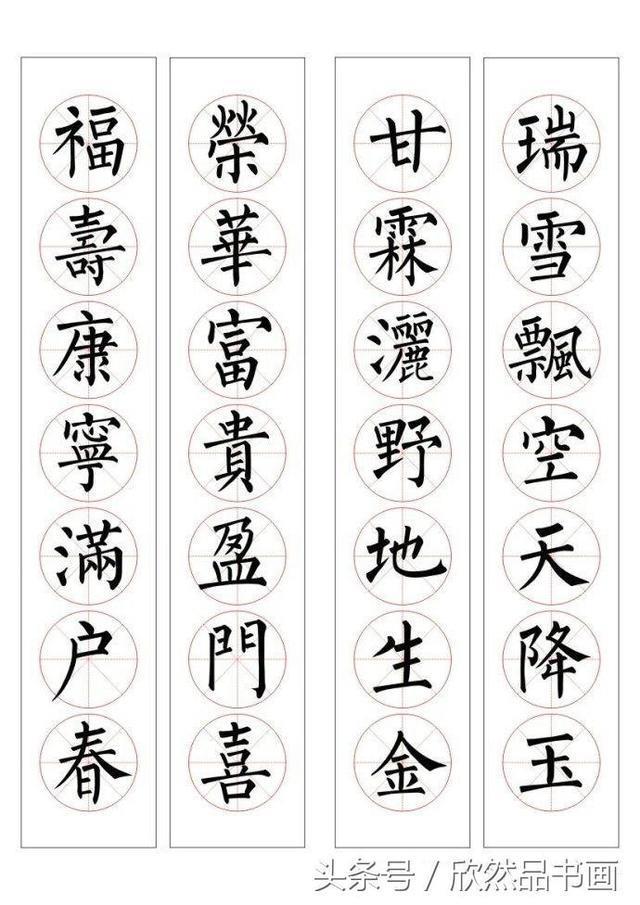 瑞雪飄空天降玉
甘霖灑野地生金
榮華富貴盈門喜
福壽康寧滿户春
头条号 / 欣然品书画